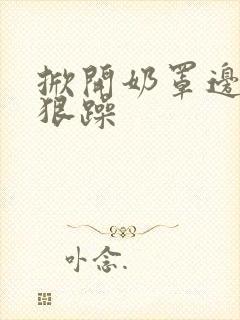 掀開奶罩邊
狠躁
卟念.